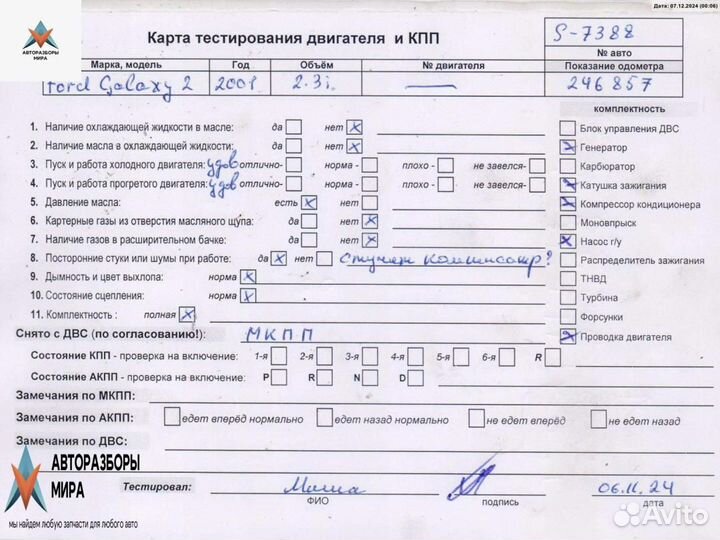 Дата: 07.12.2024 (00:06)
АВТОРАЗБОРЫ
МИРА
Карта тестирования двигателя и КПП
S-7388
№ авто
Марка, модель Год Объём № двигателя Показание одометра
Ford Galaxy 2 2001 2.3i — 246857
комплектность
1. Наличие охлаждающей жидкости в масле: да нет X
Блок управления ДВС
2. Наличие масла в охлаждающей жидкости: да нет X
Генератор
3. Пуск и работа холодного двигателя: удов отлично- норма - плохо - не завелся-
Карбюратор
4. Пуск и работа прогретого двигателя: удов отлично- норма - плохо - не завелся-
Катушка зажигания
5. Давление масла: есть X нет
Компрессор кондиционера
6. Картерные газы из отверстия масляного щупа: да нет X
Моновпрыск
7. Наличие газов в расширительном бачке: да нет X
Насос г/у
8. Посторонние стуки или шумы при работе: да X нет стучит ?
Распределитель зажигания
9. Дымность и цвет выхлопа: норма X
ТНВД
10. Состояние сцепления: норма X
Турбина
11. Комплектность : полная X
Форсунки
Снято с ДВС (по согласованию!): МКПП
Проводка двигателя
Состояние КПП - проверка на включение: 1-я 2-я 3-я 4-я 5-я 6-я R
Состояние АКПП - проверка на включение: P R N D
Замечания по МКПП:
Замечания по АКПП: едет вперёд нормально едет назад нормально не едет вперёд не едет назад
Замечания по ДВС:
АВТОРАЗБОРЫ
МИРА
мы найдем любую запчасти для любого авто
Тестировал: Миша 06.11.24
ФИО подпись дата
Avito